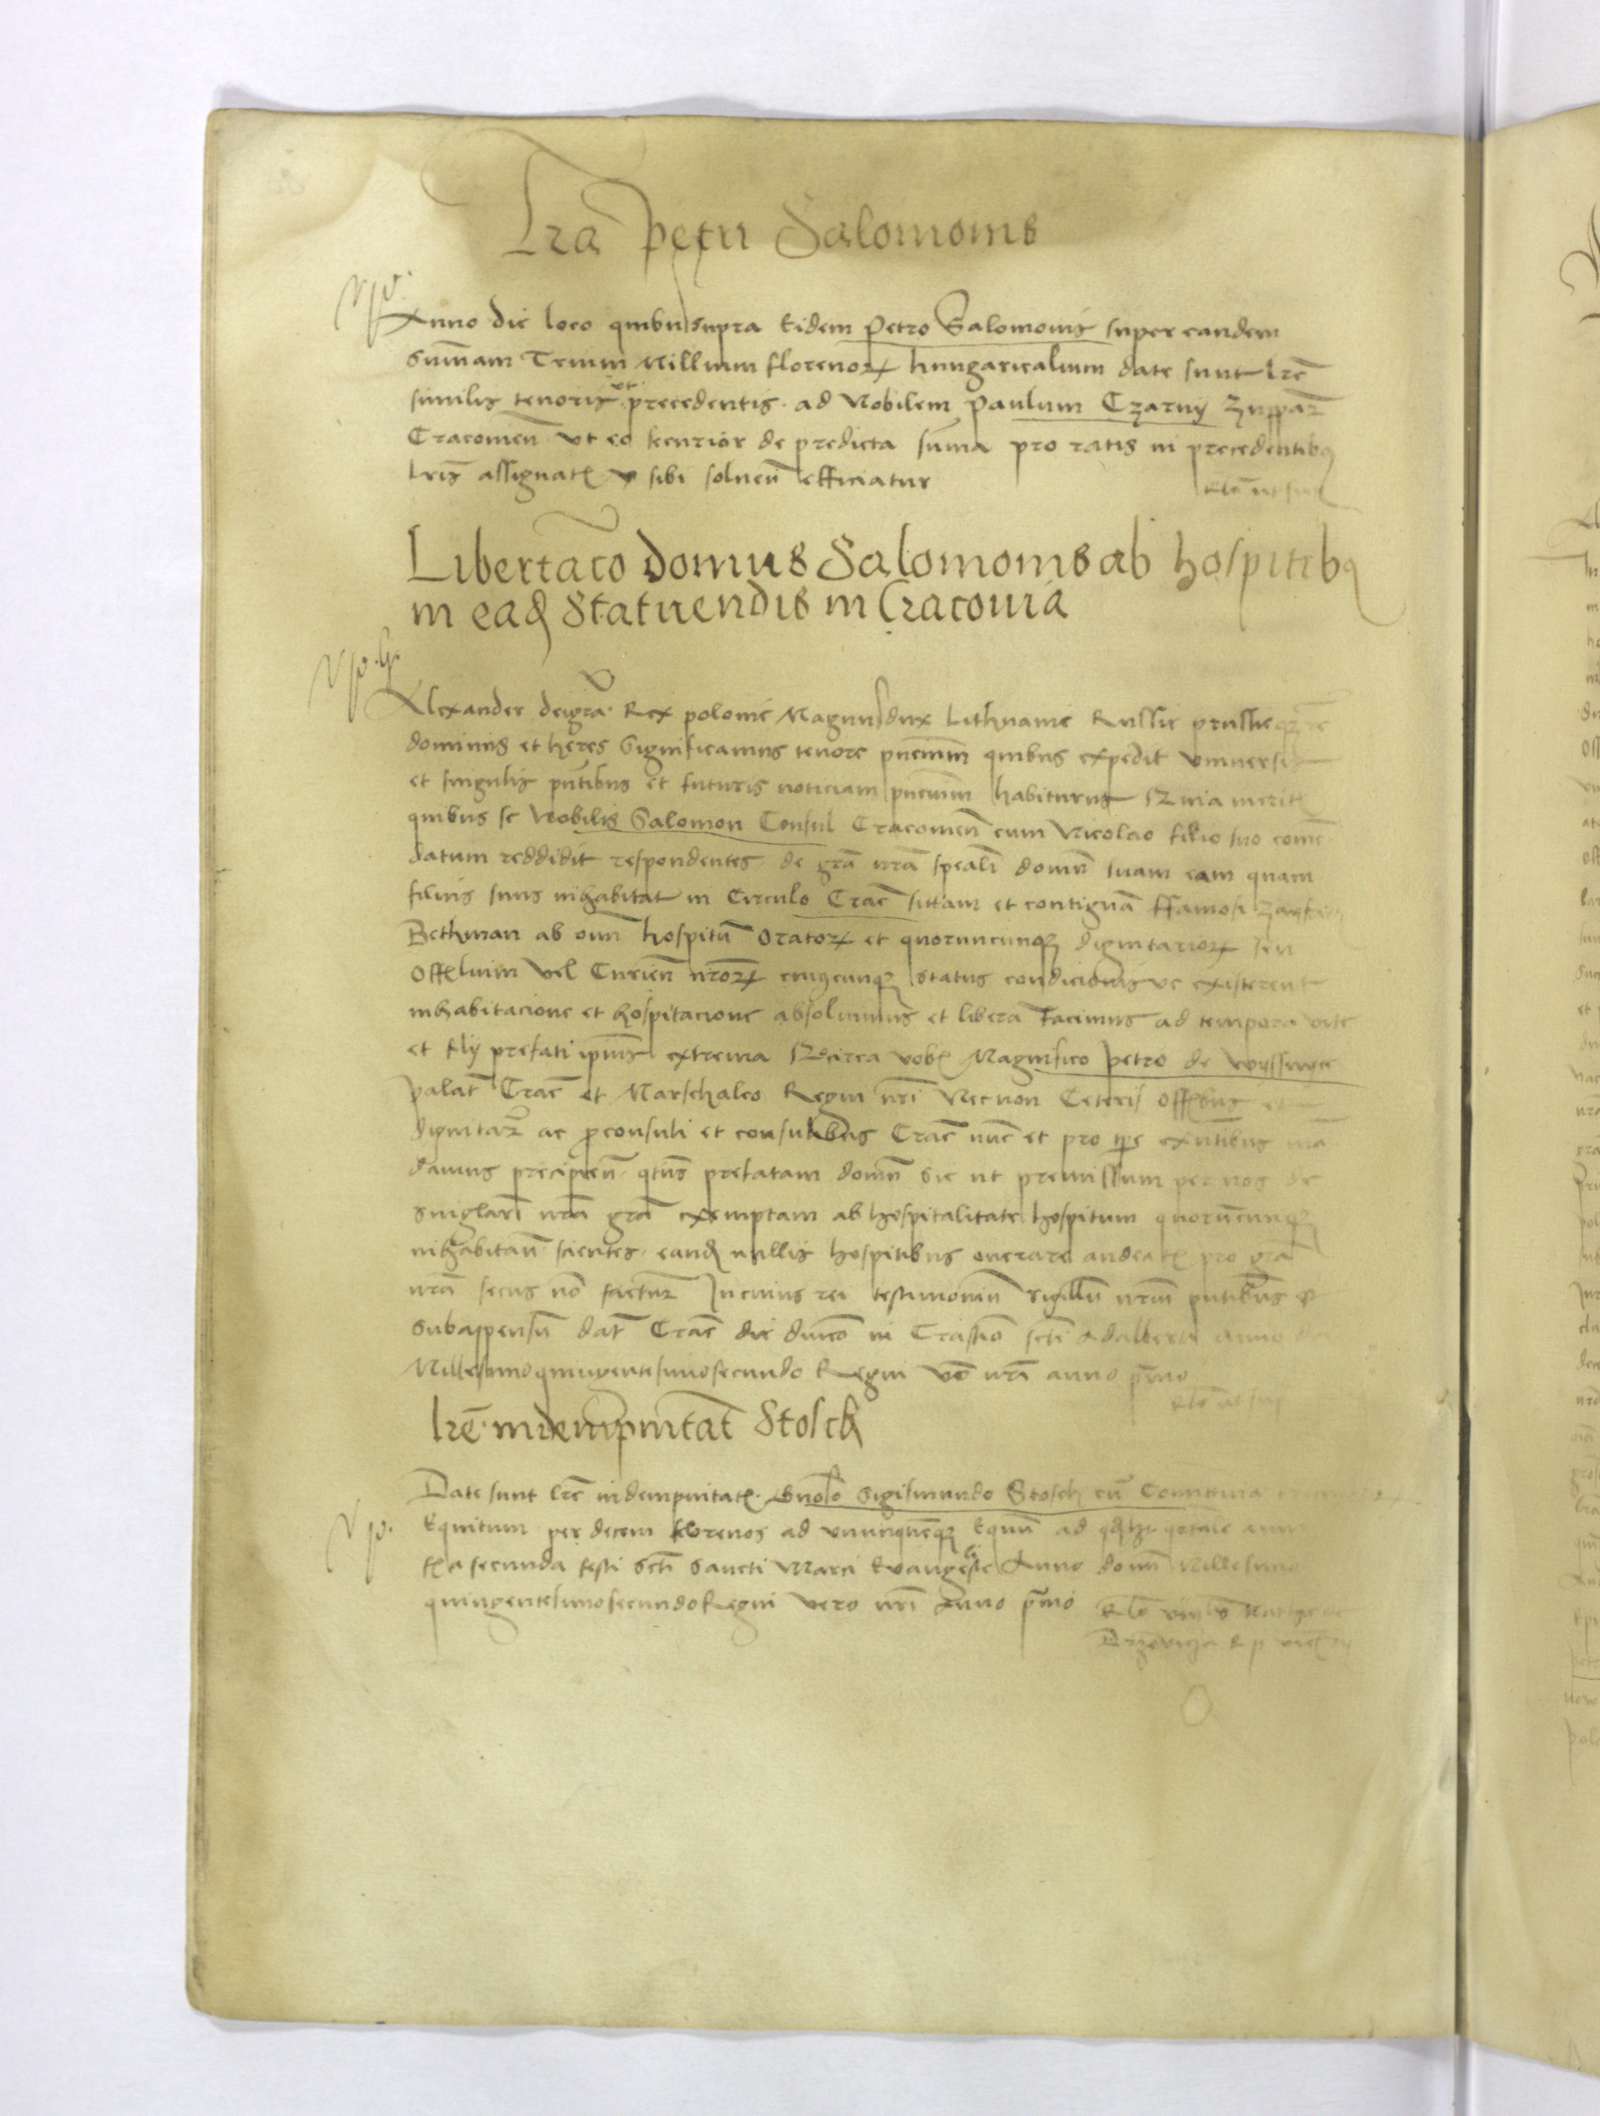 Lra petri Salomonis
Anno die loco quibus supra Eidem Petro Salomonis super eandem
Sum̄am Trium Millium florenorꝝ hungaricalium date sunt lr̄e
similis tenoris ut precedentis. ad Nobilem Paulum Czarny Zupparī
Cracouien̄ Vt eo securior de predicta sum̄a pro ratis in precedentibꝫ
lrīs assignatꝭ sibi soluen̄ efficiatur
Libertac̄o domus Salomonis ab hospitibꝫ
in eaꝺ Statuendis in Cracouia
Alexander dei gra͞ Rex polonie Magnus dux Lithuanie Russie prussieqꝫ
dominus et heres Significamus tenore pn̄cium quibus expedit vniuersis
et singulis pn̄tibus et futuris noticiam pn̄cium habituris Quia
quibus se Nobilis Salomon Consul Cracouien̄ cum Nicolao filio suo com̄en
datum reddidit respondentes de gra͞ nr̄a sp̄eali domū suam eam quam
filius suus inhabitat in Circulo Crac̄ sittam et contiguā ffamosi
Bethman ab oīm hospitū Oratorꝝ et quorumcunqꝫ dignitariorꝝ seu
Offꝭlium vel Curien̄ nr̄orꝝ cuiuscunqꝫ status condicionis ve existerent
inhabitacione et hospitacione absoluimus et liberā facimus ad tempora vite
et filij prefati ipius extrema Quocirca vobꝭ Magnifico Petro de
palat̄ Crac̄ et Marschalco Regni nr̄i Necnon Ceteris Offꝭbus et
dignitarī ac proconsuli et consulibus Crac̄ nūc et pro tpe exn̄tibus man
damus precipien̄. qt̄us prefatam domū sic ut premissum per nos de
singlari nr̄a gra͞ exemptam ab hospitalitate hospitum quorūcunqꝫ
inhabitan̄ scientes. eanꝺ nullis hospitibus onerare audeatꝭ pro gra͞
nr̄a secus nō facturī In cuius rei testimoniū sigillū nr̄m pn̄tibus
subappensū dat̄ Crac̄ die dn̄ico in Crastino sc̄ti Adalberti anno
Millesimoquingentesimosecundo Regni vo nr̄i anno pr̄mo
lr̄e indempnitat̄ Stosch
Date sunt lr̄e indempnitatꝭ. Gn̄oso Sigismundo Stosch cū Comitiua
Equitum per decem florenos ad vnumquēqꝫ Equū ad
secunda festi Sancti Marci Ewangeliste Anno domī Millesimo
quingentesimosecundo Regni vero nr̄i Anno pr̄mo